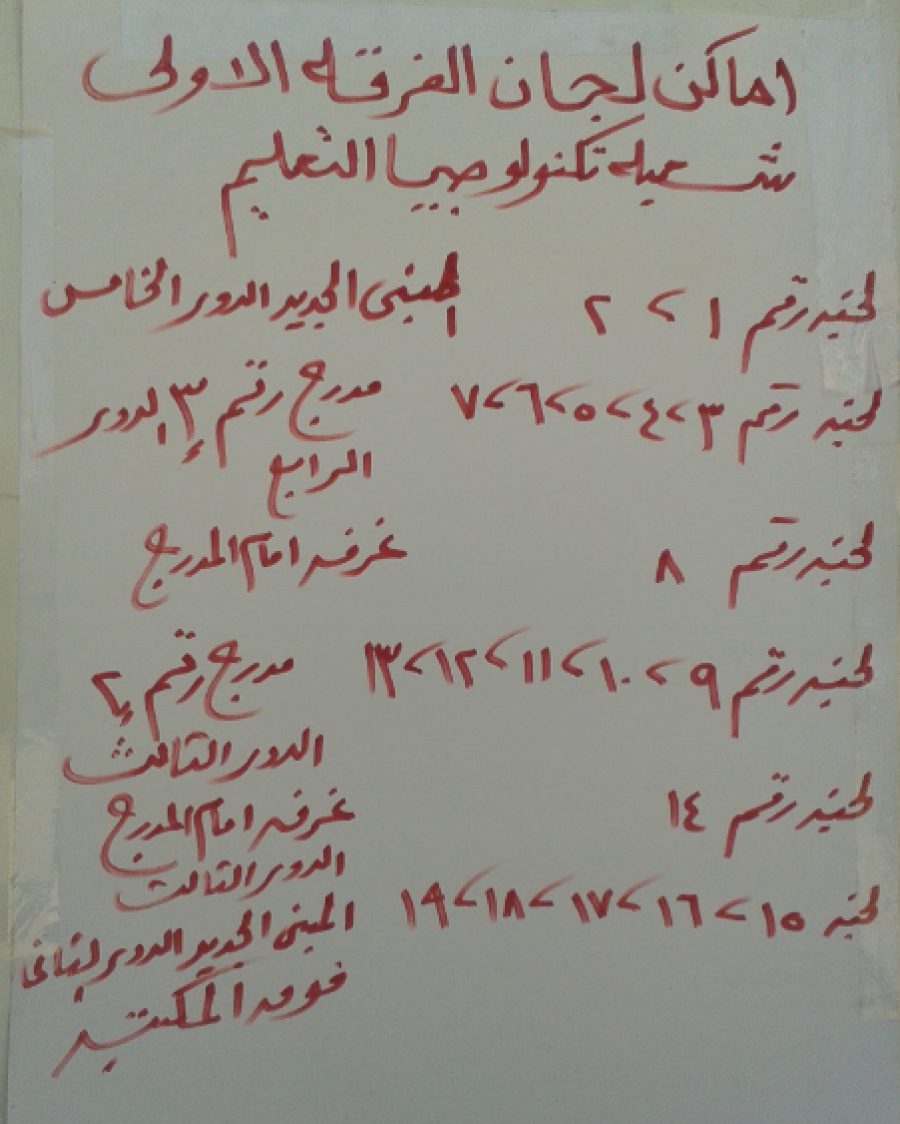 اماكن لجان الفرقه الاولى
شعبه تكنولوجيا التعليم
لجنه رقم ١ > ٢ المبنى الجديد الدور الخامس
لجنه رقم ٣ > ٤ > ٥ > ٦ > ٧ مدرج رقم ٣ الدور
الرابع
لجنه رقم ٨ غرفه امام المدرج
لجنه رقم ٩ > ١٠ > ١١ > ١٢ > ١٣ مدرج رقم ٢
الدور الثالث
لجنه رقم ١٤ غرفه امام المدرج
الدور الثالث
لجنه ١٥ > ١٦ > ١٧ > ١٨ > ١٩ المبنى الجديد الدور الثانى
فوق المكتبه